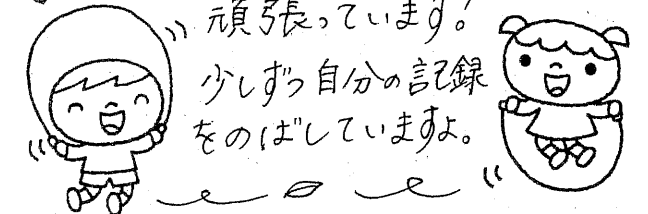 頑張っています!
少しずつ自分の記録
をのばしていますよ。